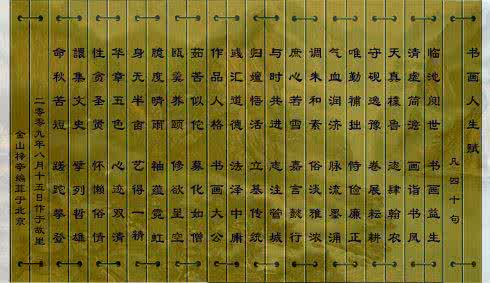 书画人生赋
凡四十句
临池阅世 书画益生
清虚简澹 画诣书风
天真 鲁 志肆翰农
守砚逸豫 卷展耘耕
唯勤补拙 恃俭廉正
气血润济 脉流墨涌
调朱和素 俗淡雅浓
庶心若雪 嘉言懿行
与时共进 志注管城
归嬗悟活 立基传统
践汇道德 法泽中庸
作品人格 书画大公
茹苦似佗 募化如僧
瓯羹养颐 修欲呈空
脆度晴雨 袖蕴霓虹
身无半亩 艺得一精
华章五色 心迹双清
性贪圣贤 怀懒俗情
集文史 擘列哲雄
命秋苦短 蹉跎攀登
二零零九年八月十五日作于故里
金山 编茸于北京